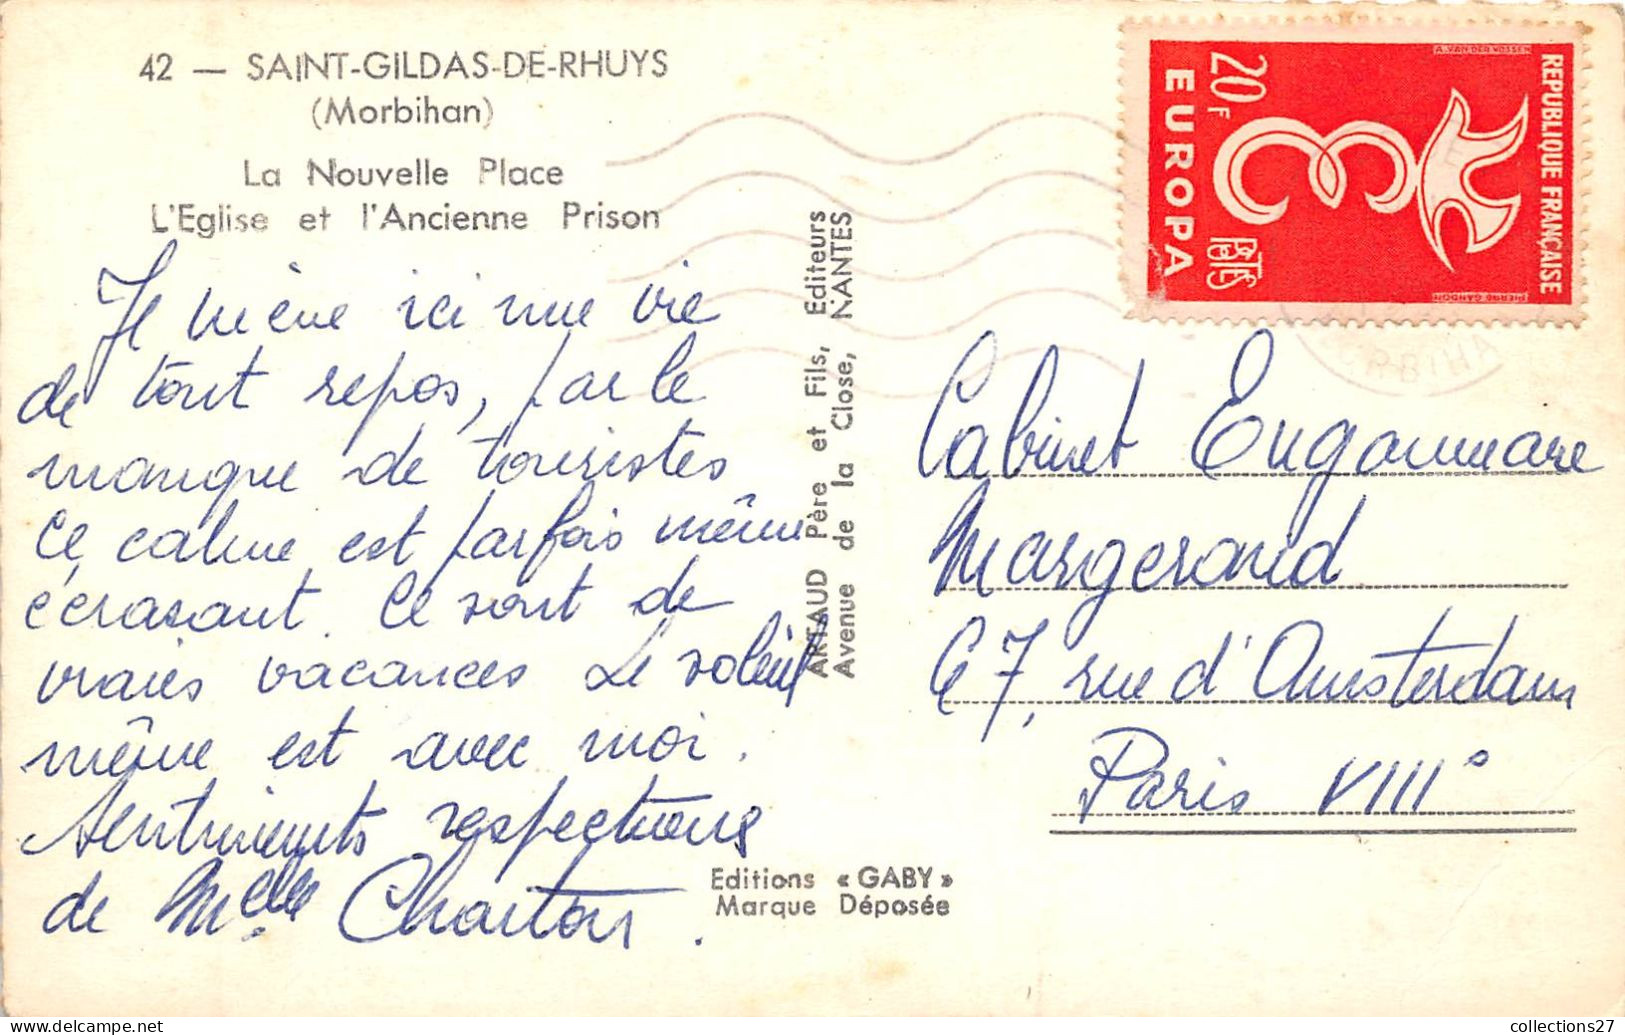 42 — SAINT-GILDAS-DE-RHUYS
(Morbihan)
La Nouvelle Place
L'Eglise et l'Ancienne Prison
Je mène ici une vie
de tout repos, par le
manque de touristes
Ce calme est parfois même
écrasant. Ce sont de
vraies vacances Le soleil
même est avec moi.
Sentiments respectueux
de Melle
ARTAUD Père et Fils, Editeurs
Avenue de la Close, NANTES
Editions « GABY »
Marque Déposée
REPUBLIQUE FRANÇAISE
A. VAN DER VOSSEN
PIERRE GANDON
20F
POSTES
EUROPA
RBIHA
Cabinet Engammare
Margerand
67, rue d'Amsterdam
Paris VIII°
collections27